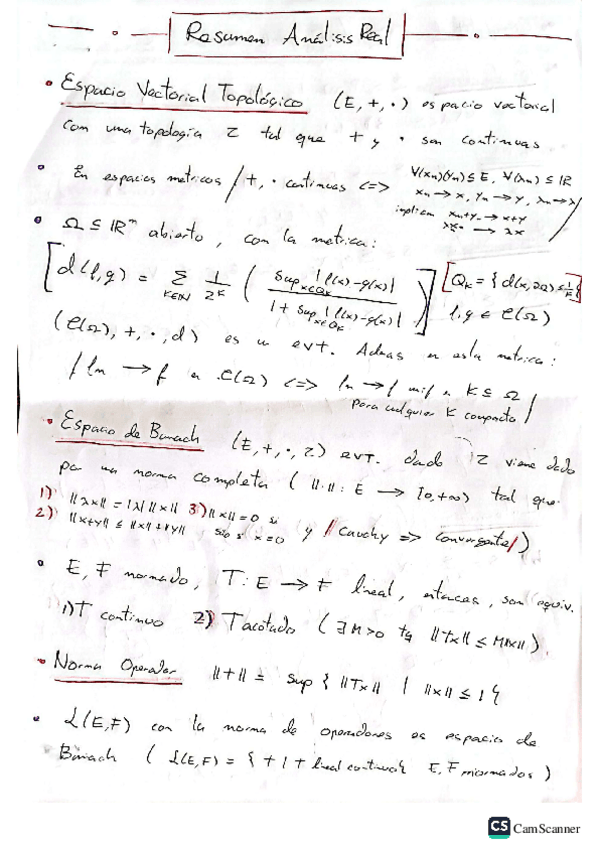 Resumen Análisis Real
• Espacio Vectorial Topológico (E, +, ·) espacio vectorial
con una topología τ tal que + y · son continuas
• En espacios metricos / +, · continuas <=> ∀(xn)(yn) ⊆ E, ∀(λn) ⊆ IR
xn → x, yn → y, λn → λ
implican xn+yn → x+y
λx
/
• Ω ⊆ IRⁿ abierto, con la metrica:
[d(f,g) = Σ K∈IN 1/2^K ( sup x∈QK |f(x)-g(x)| / 1 + sup x∈QK |f(x)-g(x)| )] [QK = { d(x,∂Ω) ≤ 1/K }
f, g ∈ C(Ω)
(C(Ω), +, ·, d) es un evt. Ademas en esta metrica:
/ fn → f en C(Ω) <=> fn → f unif en K ⊆ Ω
para cualquier K compacto /
• Espacio de Banach (E, +, ·, τ) evt. dado τ viene dado
por una norma completa ( ||·|| : E → [0,+∞) tal que
1) ||λx|| = |λ| ||x|| 3) ||x|| = 0 si
2) ||x+y|| ≤ ||x||+||y|| solo si x=0 y // cauchy => convergente/)
• E, F normado, T: E → F lineal, entonces, son equiv.
1) T continuo 2) T acotado ( ∃ M>0 tq ||Tx|| ≤ M||x||).
• Norma Operador ||T|| = sup { ||Tx|| | ||x|| ≤ 1 {
• L(E,F) con la norma de operadores es espacio de
Banach ( L(E,F) = { T | T lineal continua{ E, F normados )
CS CamScanner